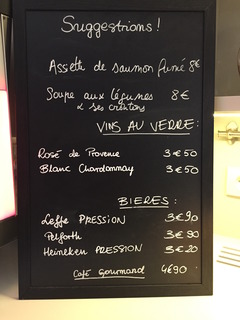 Suggestions !
Assiette de saumon fumé 8€
Soupe aux légumes 8€
& ses croûtons
VINS AU VERRE :
Rosé de Provence 3€50
Blanc Chardonnay 3€50
BIERES :
Leffe PRESSION 3€90
Pelforth 3€90
Heineken PRESSION 3€20
Café Gourmand 4€90